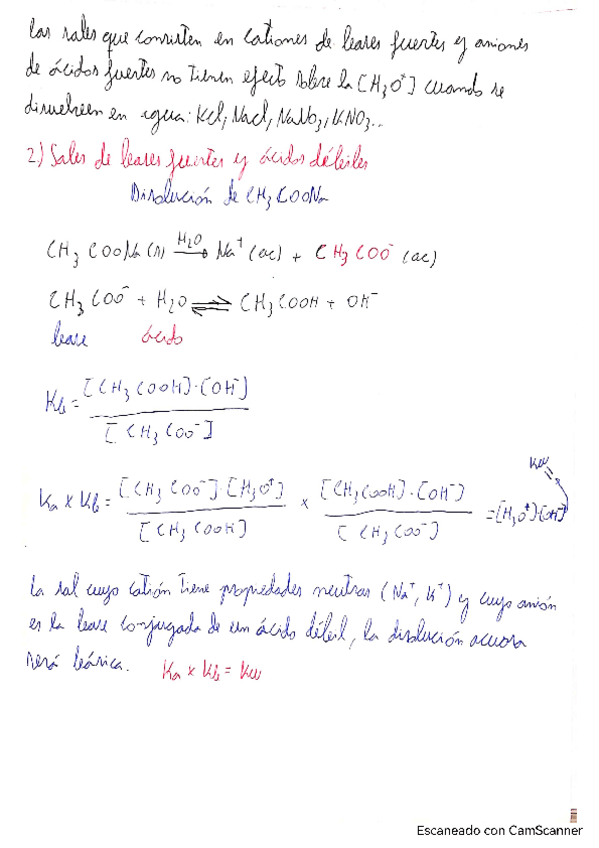 Las sales que consisten en cationes de bases fuertes y aniones
de ácidos fuertes no tienen efecto sobre la [H3O+] cuando se
disuelven en agua: KCl, NaCl, NaNO3, KNO3...
2) Sales de bases fuertes y ácidos débiles
Disolución de CH3COONa
CH3COONa (s) H2O → Na+ (ac) + CH3COO- (ac)
CH3COO- + H2O ⇌ CH3COOH + OH-
base ácido
Kb = [CH3COOH]·[OH-] / [CH3COO-]
Kw
Ka x Kb = [CH3COO-]·[H3O+] / [CH3COOH] x [CH3COOH]·[OH-] / [CH3COO-] = [H3O+]·[OH-]
La sal cuyo catión tiene propiedades neutras (Na+, K+) y cuyo anión
es la base conjugada de un ácido débil, la disolución acuosa
será básica. Ka x Kb = Kw
Escaneado con CamScanner